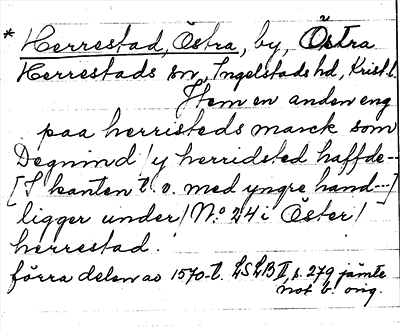 * Herrestad, Östra, by, Östra
Herrestads sn, Ingelstads hd, Krist.l.
Item en anden eng
paa herristeds marck som
Degnind /y herridsted haffde--
[I kanten t.v. med yngre hand--]
ligger under/ No 24 i Öster/
herrestad.
förra delen av 1570-t. LSLB II, s. 279 jämte
not b. orig.